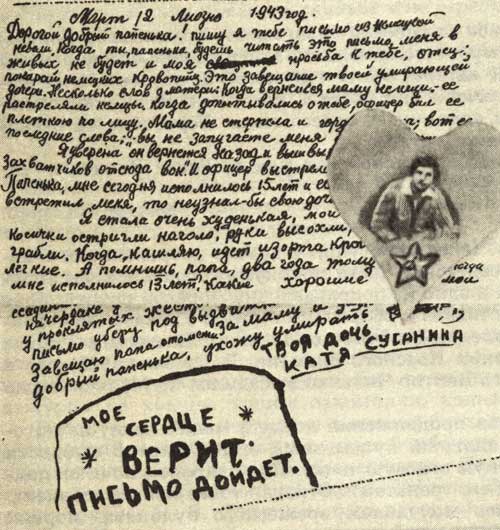 Март 12 Лиозно 1943 год.
Дорогой добрый папенька! пишу я тебе письмо из немецкой
неволи. Когда ты, папенька, будешь читать это письмо, меня в
живых не будет и моя просьба к тебе, отец:
покарай немецких кровопийц. Это завещание твоей умирающей
дочери. Несколько слов о матери. Когда вернешься, маму не ищи. ее
расстреляли немцы. Когда допытывались о тебе, офицер бил ее
плеткою по лицу. Мама не стерпела и горд а; вот ее
последние слова; "вы не запугаете меня
Я уверена он вернется назад и вышвы
захватчиков отсюда вон". И офицер выстрел
Папенька, мне сегодня исполнилось 15 лет и ес
встретил меня, то неузнал-бы свою доч
Я стала очень худенькая, мои
Косички остригли наголо, руки высохли,
грабли. Когда, кашляю, идет изорта кро
легкие. А помнишь, папа, два года тому когда
мне исполнилось 13 лет. Какие хорошие мои
начердаке у
у проклятых
письмо уберу под
Завещаю папа отомсти за маму и
добрый папенька, ухожу умирать
ТВОЯ ДОЧЬ
КАТЯ СУСАНИНА
МОЕ
СЕРДЦЕ
ВЕРИТ.
ПИСЬМО ДОЙДЕТ.